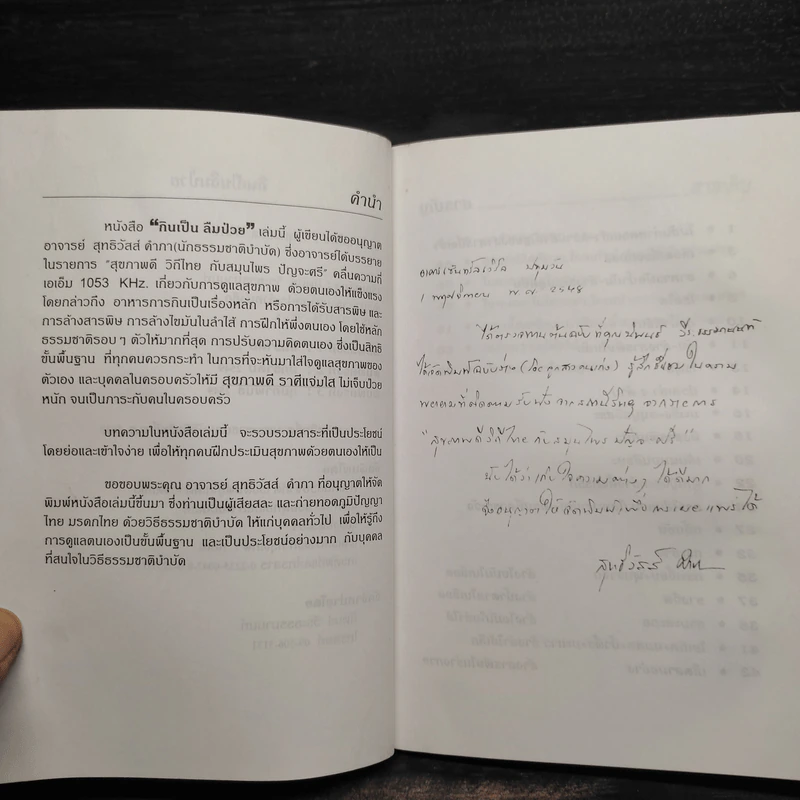 คำนำ
หนังสือ "กินเป็น ลืมป่วย" เล่มนี้ ผู้เขียนได้ขออนุญาต
อาจารย์ สุทธิวัสส์ คำภา(นักธรรมชาติบำบัด) ซึ่งอาจารย์ได้บรรยาย
ในรายการ "สุขภาพดี วิถีไทย กับสมุนไพร ปัญจะศรี" คลื่นความถี่
เอเอ็ม 1053 KHz. เกี่ยวกับการดูแลสุขภาพ ด้วยตนเองให้แข็งแรง
โดยกล่าวถึง อาหารการกินเป็นเรื่องหลัก หรือการได้รับสารพิษ และ
การล้างสารพิษ การล้างไขมันในลำไส้ การฝึกให้พึ่งตนเอง โดยใช้หลัก
ธรรมชาติรอบๆ ตัวให้มากที่สุด การปรับความคิดตนเอง ซึ่งเป็นสิทธิ
ขั้นพื้นฐาน ที่ทุกคนควรกระทำ ในการที่จะหันมาใส่ใจดูแลสุขภาพของ
ตัวเอง และบุคคลในครอบครัวให้มี สุขภาพดี ราศีแจ่มใส ไม่เจ็บป่วย
หนัก จนเป็นภาระกับคนในครอบครัว
บทความในหนังสือเล่มนี้ จะรวบรวมสาระที่เป็นประโยชน์
โดยย่อและเข้าใจง่าย เพื่อให้ทุกคนฝึกประเมินสุขภาพด้วยตนเองให้เป็น
ขอขอบพระคุณ อาจารย์ สุทธิวัสส์ คำภา ที่อนุญาตให้จัด
พิมพ์หนังสือเล่มนี้ขึ้นมา ซึ่งท่านเป็นผู้เสียสละ และถ่ายทอดภูมิปัญญา
ไทย มรดกไทย ด้วยวิธีธรรมชาติบำบัด ให้แก่บุคคลทั่วไป เพื่อให้รู้ถึง
การดูแลตนเองเป็นขั้นพื้นฐาน และเป็นประโยชน์อย่างมาก กับบุคคล
ที่สนใจในวิธีธรรมชาติบำบัด
ปทุมวัน
1 พฤศจิกายน พ.ศ. 2548
ได้ตรวจทานต้นฉบับที่คุณ
ได้จัดพิมพ์ฉบับร่าง รู้สึกชื่นชมในความ
พยายามที่ติดตามรับฟัง จากสถานีวิทยุ จากรายการ
"สุขภาพดีวิถีไทย กับสมุนไพร ปัญจะศรี"
นับได้ว่าเก็บใจความต่างๆ ได้ดีมาก
จึงอนุญาตให้จัดพิมพ์เพื่อการเผยแพร่ได้
สุทธิวัสส์ คำภา